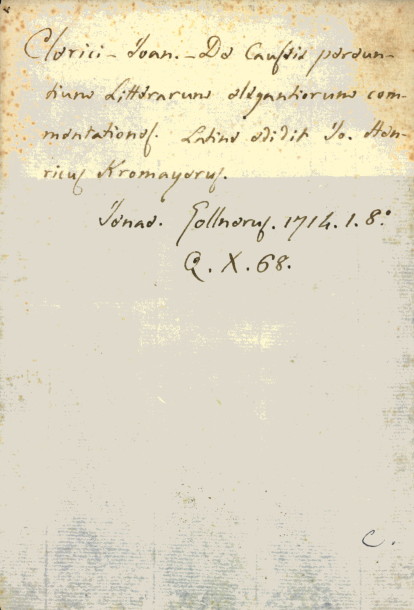 Clerici - Joan. - De Caussis pereun-
tium Litterarum elegantiorum com-
mentationes. Latine edidit Jo. Hen-
ricus Kromayerus.
Jenae. Gollnerus. 1714. 1. 8.°
Q. X. 68.
C.